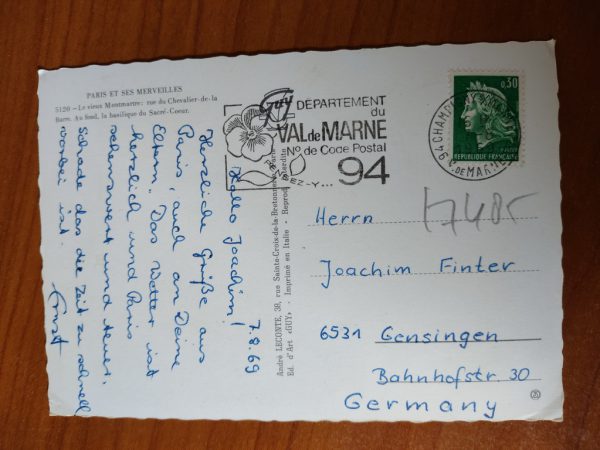 PARIS ET SES MERVEILLES
5120 – Le vieux Montmartre: rue du Chevalier-de-la
Barre. Au fond, la basilique du Sacré-Coeur.
7.8.69
Hallo Joachim!
Herzliche Grüße aus
Paris, auch an Deine
Eltern. Das Wetter ist
herrlich und Paris
sehenswert und teuer.
Schade das die Zeit zu schnell
vorbei ist.
Ernst
André LECONTE, 38, rue Sainte-Croix-de-la-Bretonnerie, Paris
Ed. d'Art «GUY» - Imprimé en Italie - Reprod. interdite
Guy
DÉPARTEMENT du
VAL de MARNE
No de Code Postal
PENSEZ-Y...
94
94 CHAMP
DE MARNE
0,30
REPUBLIQUE FRANÇAISE
Herrn
Joachim Finter
6531 Gensingen
Bahnhofstr. 30
Germany